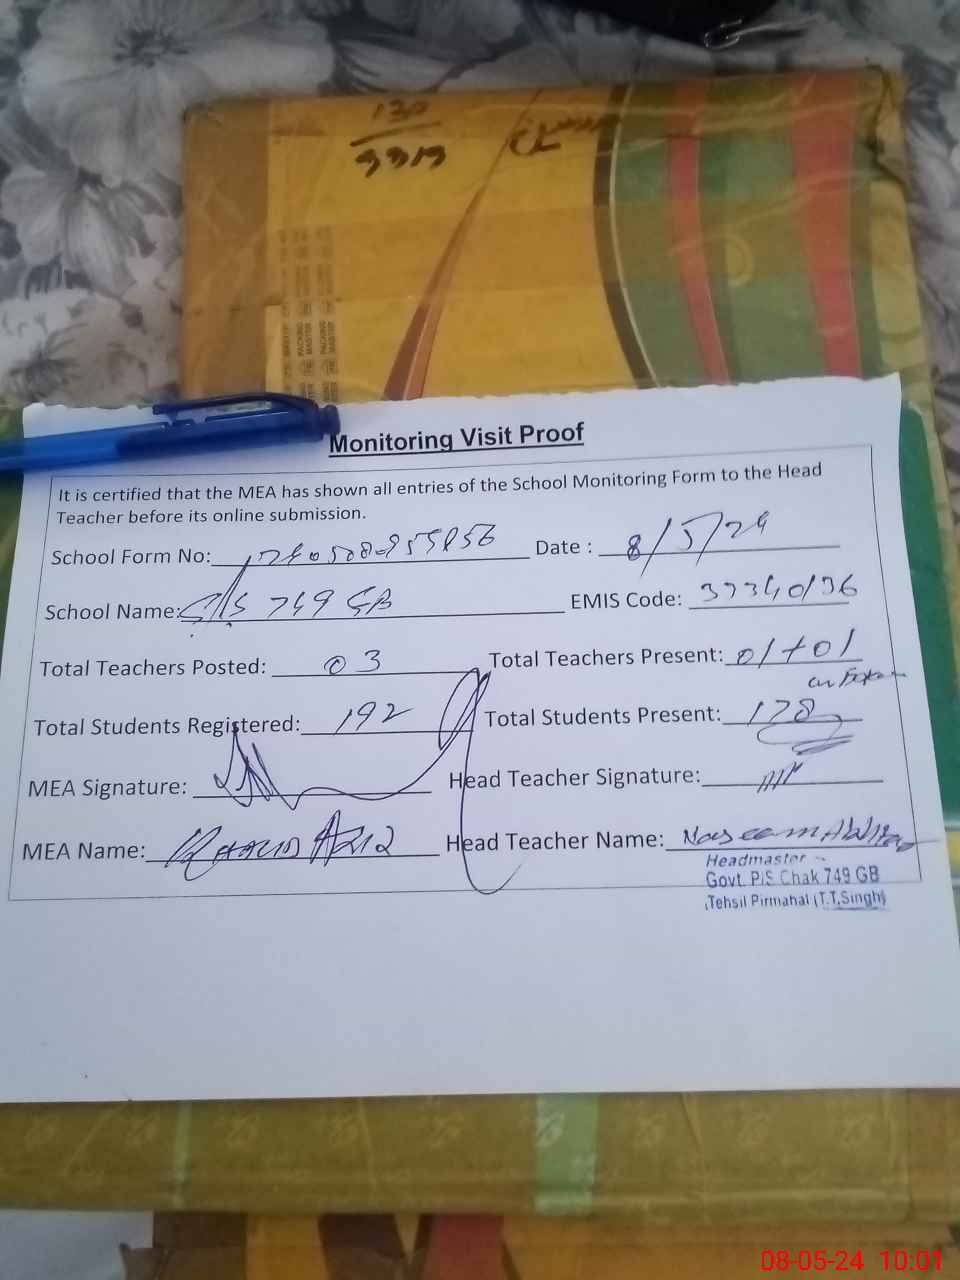 130
3313
PACKING
MASTER
Monitoring Visit Proof
It is certified that the MEA has shown all entries of the School Monitoring Form to the Head
Teacher before its online submission.
School Form No: Date : 8/5/24
School Name: 749 GB EMIS Code:
Total Teachers Posted: 03 Total Teachers Present: 01+01
Total Students Registered: 192 Total Students Present: 178
MEA Signature: Head Teacher Signature:
MEA Name: Khalid Aziz Head Teacher Name: Naseem
Headmaster
Govt. P/S Chak 749 GB
Tehsil Pirmahal (T.T.Singh)
08-05-24 10:01